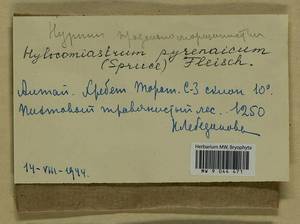 Hypnum
Hylocomiastrum pyrenaicum
(Spruce) Fleisch.
Алтай. Хребет Торот. С-З склон 10°.
Пихтовый травянистый лес. 1250
Н. Лебединова
14-VIII-1944.
Herbarium MW, Bryophyta
MW 9 044 471